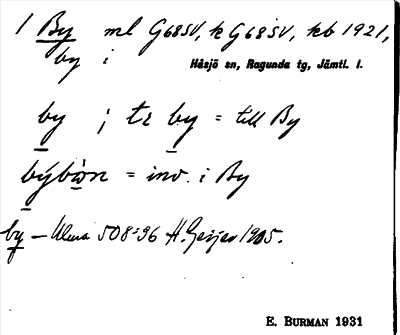 1 By ml G68SV, k G68SV, kb 1921,
by i
Håsjö sn, Ragunda tg, Jämtl. l.
by i te by = till By
býbòn = inv. i By
by – Ulma 508:96 H. Geijer 1905.
E. BURMAN 1931